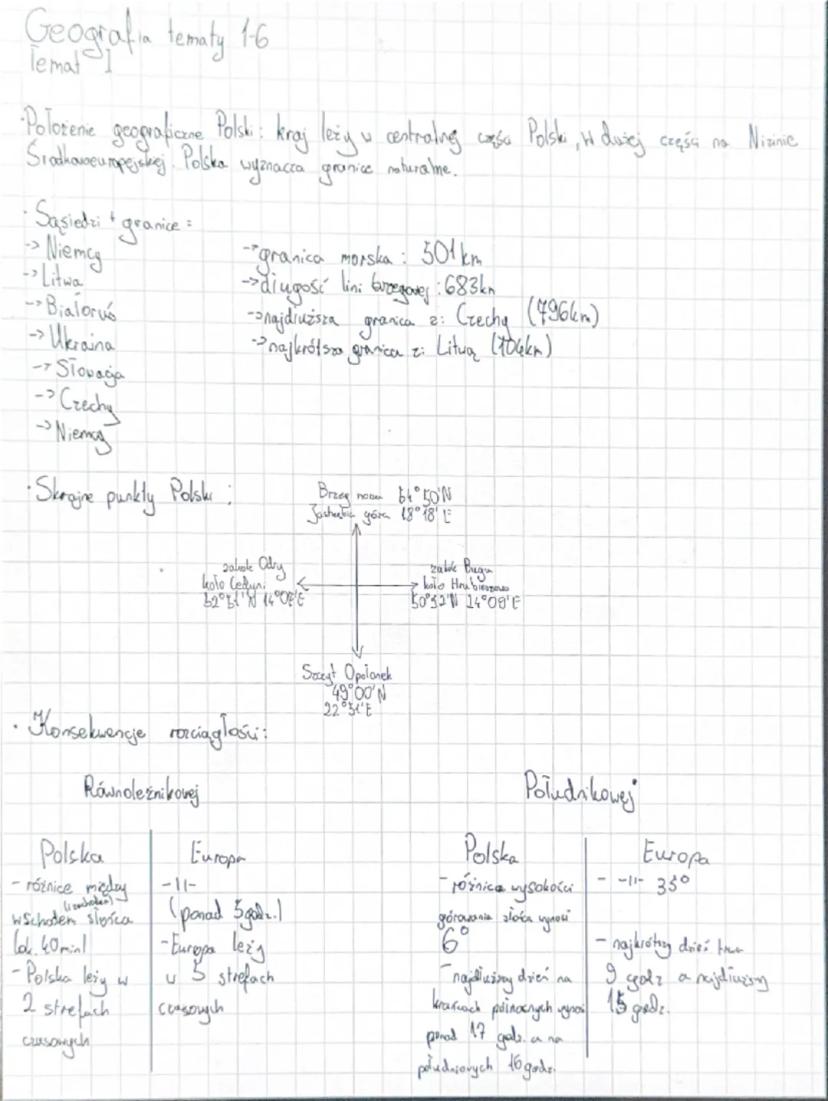 Geografia tematy 1-6
Temat I
• Położenie geograficzne Polski: kraj leży w centralnej części Polski, w dużej części na Nizinie
Środkowoeuropejskiej. Polska wyznacza granice naturalne.
• Sąsiedzi + granice:
-> Niemcy
-> Litwa
-> Białoruś
-> Ukraina
-> Słowacja
-> Czechy
-> Niemcy
-> granica morska: 501km
-> długość lini brzegowej: 683km
-> najdłuższa granica z: Czechy (796km)
-> najkrótsza granica z: Litwą (104km)
• Skrajne punkty Polski:
Brzeg morza 54°50'N
Jastrzębia góra 18°18'E
zakole Odry
koło Cedyni
52°51'N 14°07'E
zakole Bugu
koło Hrubieszowa
50°52'N 24°09'E
Szczyt Opołonek
49°00'N
22°51'E
• Konsekwencje rozciągłości:
Równoleżnikowej
Polska
- różnice między
(i zachodem)
wschodem słońca
(ok. 40min)
- Polska leży w
2 strefach
czasowych
Europa
-11-
(ponad 5godz.)
- Europa leży
w 5 strefach
czasowych
Południkowej
Polska
- różnica wysokości
górowania słońca wynosi
6°
- najdłuższy dzień na
krańcach północnych wynosi
ponad 17 godz. a na
południowych 16godz.
Europa
- -11- 35°
- najkrótszy dzień trwa
9 godz a najdłuższy
15 godz.